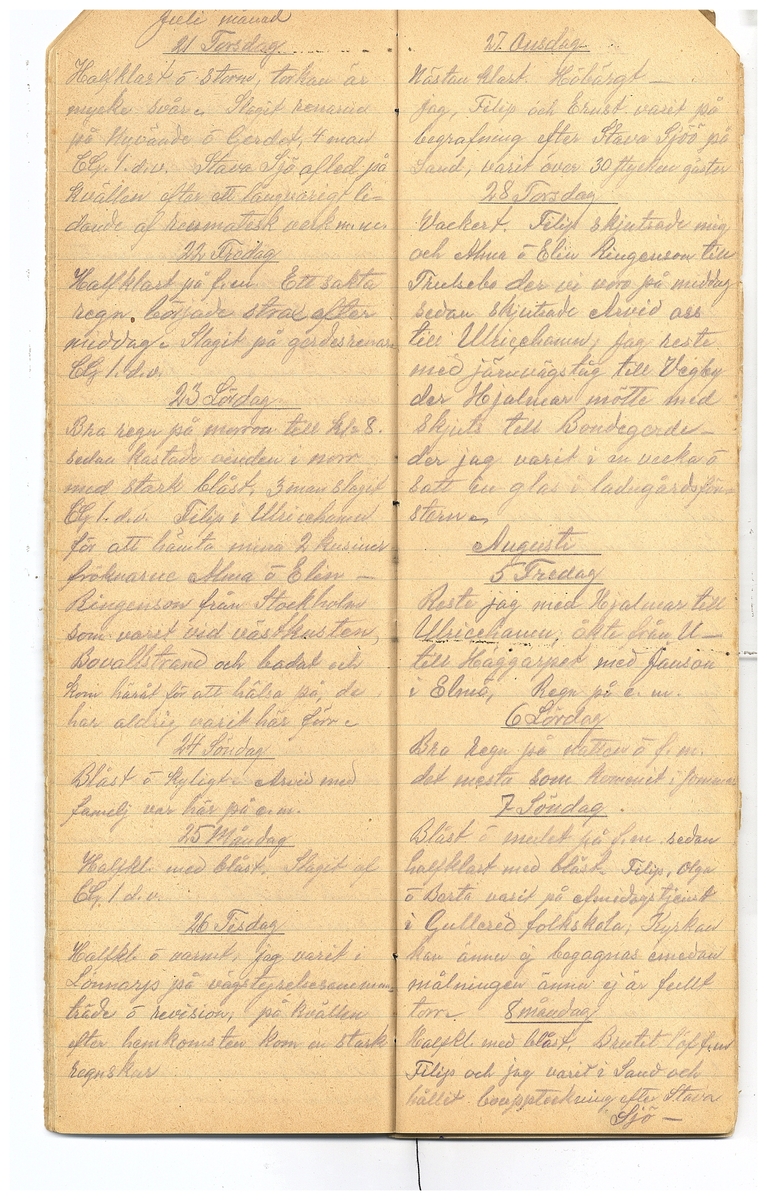 Juli månad
21 Torsdag
Halfklart ö storm, torkan är
mycke svår. Slagit renarna
på Nyvände ö Gerdet, 4 man
Elg. 1. d.v. Stava Sjö afled på
kvällen efter ett långvarigt li-
dande af reumatesk verk m.m.
22 Fredag
Halfklart på f.m. Ett sakta
regn började strax efter
middag. Slagit på gerdesrenar
Elg 1. d.v.
23 Lördag
Bra regn på morron till kl. 8.
sedan kastade vinden i norr
med stark blåst, 3 man slagit
Elg 1. d.v. Filip i Ulricehamn
för att hämta mina 2 kusiner
fröknarne Alma ö Elin -
Ringenson från Stockholm
som varit vid västkusten,
Bovallstrand och badat och
kom häråt för att hälsa på, de
har aldrig varit här förr.
24 Söndag
Blåst ö kyligt. Arvid med
familj var här på e.m.
25 Måndag
Halfkl. med blåst. Slagit af
Elg. 1 d.v.
26 Tisdag
Halfkl. ö varmt, jag varit i
Lönnarp på vägstyrelsesamman-
träde ö revision, på kvällen
efter hemkomsten kom en stark
regnskur
27. Onsdag
Nästan klart. Höbärgt -
Jag, Filip och Ernst varit på
begrafning efter Stava Sjöö på
Sand, varit över 30 stycken gäster
28 Torsdag
Vackert. Filip skjutsade mig
och Alma ö Elin Ringenson till
Trulsebo der vi voro på middag
sedan skjutsade Arvid oss
till Ulricehamn, jag reste
med järnvägståg till Vegby
der Hjalmar mötte med
skjuts till Bondegerde -
der jag varit i en vecka ö
satt in glas i ladugårdsfön-
stern.
Augusti
5 Fredag
Reste jag med Hjalmar till
Ulricehamn, åkte från U-
till Häggarpet med Janson
i Elmå, Regn på e.m.
6 Lördag
Bra Regn på natten ö f.m.
det mesta som kommit i sommar
7 Söndag.
Blåst ö mulet på f.m. sedan
halfklart med blåst. Filip, Olga
ö Berta varit på gudstjenst
i Gullered folkskola, Kyrkan
kan ännu ej begagnas emedan
målningen ännu ej är fullt
torr. 8 måndag
Halfkl. med blåst. Brutit löf f.m
Filip och jag varit i Sand och
hållit bouppteckning efter Stava
Sjö -